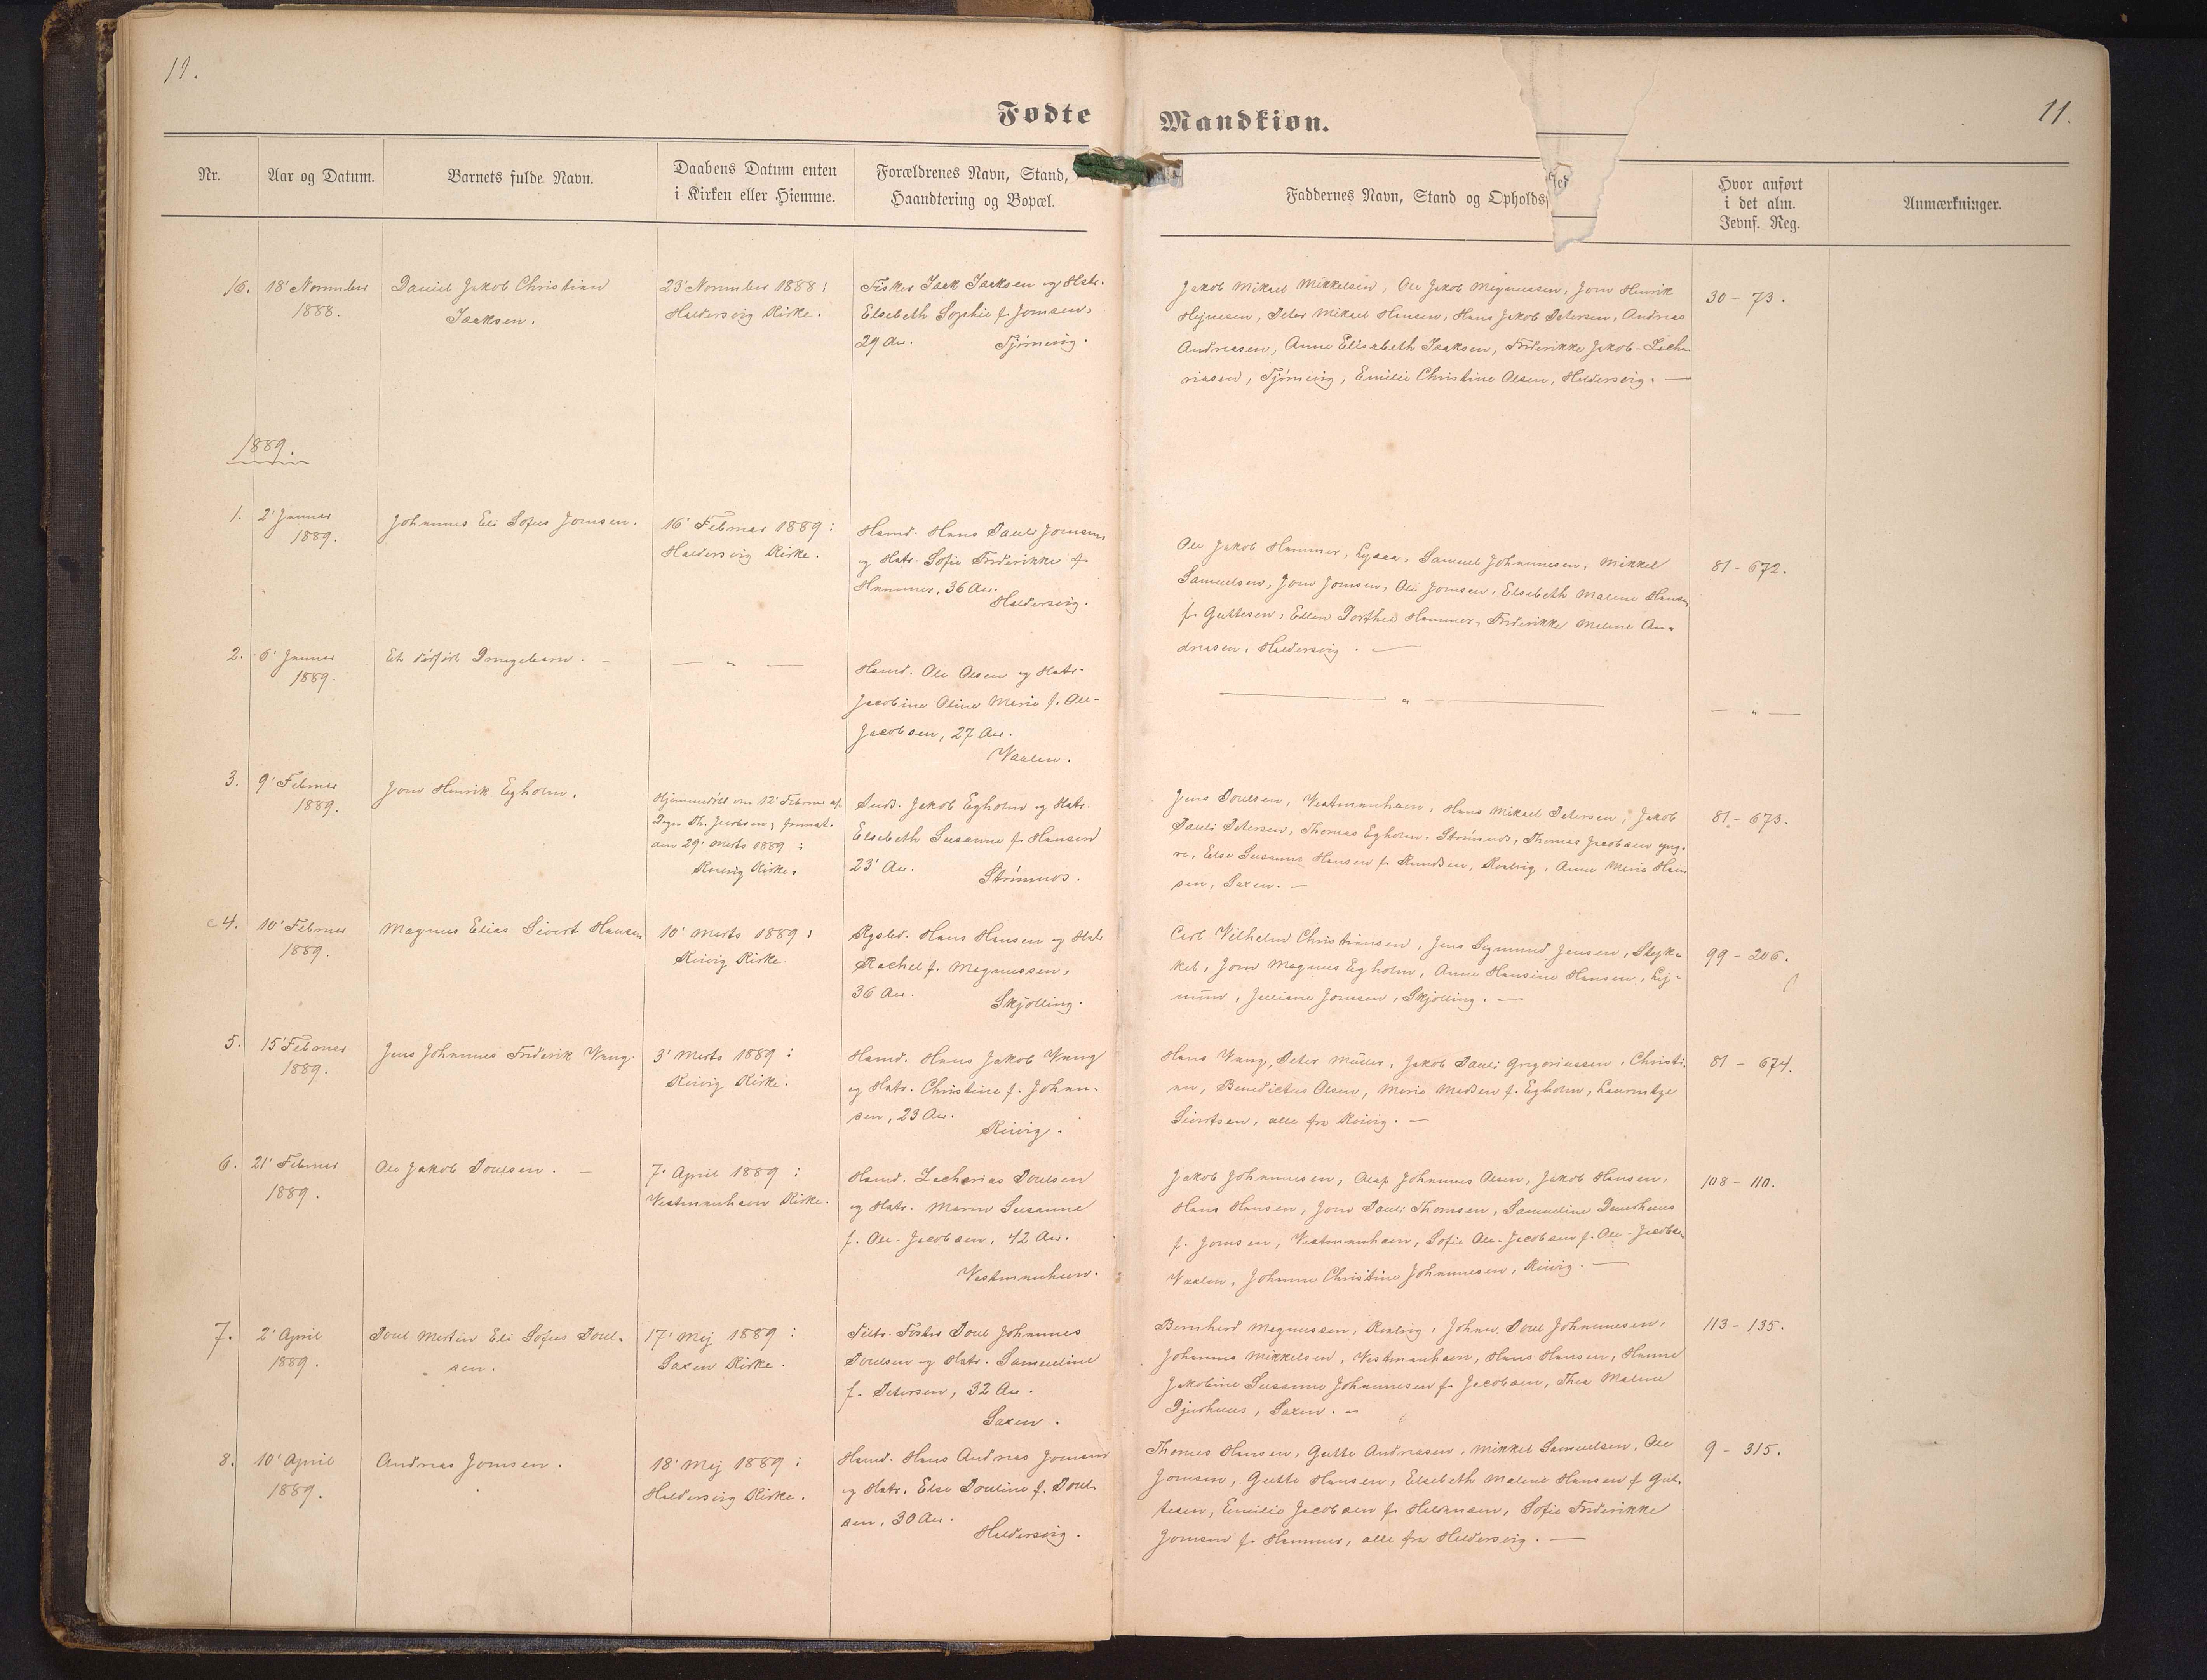 11.
11.
Fødte Mandkiøn.
Nr.
Aar og Datum.
Barnets fulde Navn.
Daabens Datum enten
i Kirken eller Hiemme.
Forældrenes Navn, Stand,
Haandtering og Bopæl.
Faddernes Navn, Stand og Opholds
sted
Hvor anført
i det alm.
Jevnf. Reg.
Anmærkninger.
16.
18' November
1888.
Daniel Jakob Christian
Isaksen.
23' November 1888:
Haldersvig Kirke.
Fisker Isak Isaksen og Hstr.
Elsebeth Sophie f. Joensen,
29 Aar.
Tjørnevig.
Jakob Mikael Mikkelsen, Ole Jakob Magnussen, Joen Henrik
Højnesen, Peter Mikael Hansen, Hans Jakob Petersen, Andreas
Andreasen, Anne Elisabeth Isaksen, Friderikke Jakob-Zacha
riasen, Tjørnevig, Emilie Christine Olsen, Haldersvig. —
30 - 73.
1889.
1.
2' Januar
1889.
Johannes Eli Sofus Joensen.
16' Februar 1889:
Haldersvig Kirke.
Hamd. Hans Pauli Joensen
og Hstr. Sofie Friderikke f.
Hammer, 36 Aar.
Haldersvig.
Ole Jakob Hammer, Ejaaa, Samuel Johannesen, Mikkel
Samuelsen, Joen Joensen, Ole Joensen, Elsebeth Malene Hansen
f. Guttesen, Ellen Dorthea Hammer, Friderikke Malene An-
dreasen, Haldersvig. —
81 - 672.
2.
6' Januar
1889.
Et dødfødt Drengebarn. —
— " —
Hamd. Ole Olsen og Hstr.
Jacobine Oline Marie f. Ole-
Jacobsen, 27 Aar.
Vaalen.
— " —
— " —
3.
9' Februar
1889.
Joen Henrik Egholm.
Hjemmedøbt den 12' Februar af
Th. Jacobsen,
den 29' Marts 1889:
Kvivig Kirke.
Jakob Egholm og Hstr.
Elsebeth Susanne f. Hansen
23' Aar.
Strømnæs.
Jens Poulsen, Vestmanhavn, Hans Mikael Petersen, Jakob
Pauli Petersen, Thomas Egholm, Strømnæs, Thomas Jacobsen yng-
re, Else Susanne Hansen f. Knudsen, Kvalvig, Anne Marie Han
sen, Saxen. —
81 - 673.
4.
10' Februar
1889.
Magnus Elias Sivert Hansen
10' Marts 1889:
Kvivig Kirke.
Hans Hansen og Hstr
Rachel f. Magnussen,
36 Aar.
Skjelling.
Carl Vilhelm Christiansen, Jens Sigmund Jensen, Stejk-
ket, Joen Magnus Egholm, Anne Hansine Hansen, Lej-
num, Juliane Joensen, Skjelling. —
99 - 206.
5.
15' Februar
1889.
Jens Johannes Friderik Vang.
3' Marts 1889:
Kvivig Kirke.
Hamd. Hans Jakob Vang
og Hstr. Christine f. Johan-
sen, 23 Aar.
Kvivig.
Hans Vang, Peter Müller, Jakob Pauli Gregoriussen, Christi-
an, Benedictus Olsen, Marie Madsen f. Egholm, Lauritze
Sivertsen, alle fra Kvivig. —
81 - 674.
6.
21' Februar
1889.
Ole Jakob Poulsen. —
7. April 1889:
Vestmanhavn Kirke.
Hamd. Zacharias Poulsen
og Hstr. Maren Susanne
f. Ole-Jacobsen, 42 Aar.
Vestmanhavn.
Jakob Johannesen, Olaf Johannes Olsen, Jakob Hansen,
Hans Hansen, Joen Pauli Thomsen, Samueline
f. Joensen, Vestmanhavn, Sofie Ole-Jacobsen f. Ole-Jacobsen
Vaalen, Johanne Christine Johannesen, Kvivig. —
108 - 110.
7.
2' April
1889.
Poul Martin Eli Sofus Poul-
sen.
17' Mej 1889:
Saxen Kirke.
Poul Johannes
Poulsen og Hstr. Samueline
f. Petersen, 32 Aar.
Saxen.
Bernhard Magnussen, Kvalvig, Johan Poul Johannesen,
Johannes Mikkelsen, Vestmanhavn, Hans Hansen, Hanne
Jakobine Susanne Johannesen f. Jacobsen, Thea Malene
Djurhuus, Saxen. —
113 - 135.
8.
10' April
1889.
Andreas Joensen.
18' Mej 1889:
Haldersvig Kirke.
Hamd. Hans Andreas Joensen
og Hstr. Else Pouline f. Poul-
sen, 30 Aar.
Haldersvig.
Thomas Hansen, Gutte Andreasen, Mikkel Samuelsen, Ole
Joensen, Gutte Hansen, Elsebeth Malene Hansen f. Gut-
tesen, Emilie Jacobsen f. Heldansen, Sofie Friderikke
Joensen f. Hammer, alle fra Haldersvig. —
9 - 315.